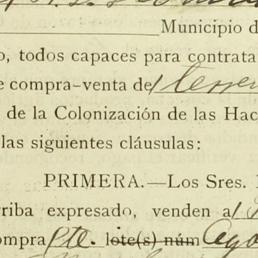 Municipio d
o, todos capaces para contrata
e compra-venta de terren
de la Colonización de las Hac
las siguientes cláusulas:
PRIMERA.—Los Sres. I
rriba expresado, venden a
ompra pte. lote(s) núm